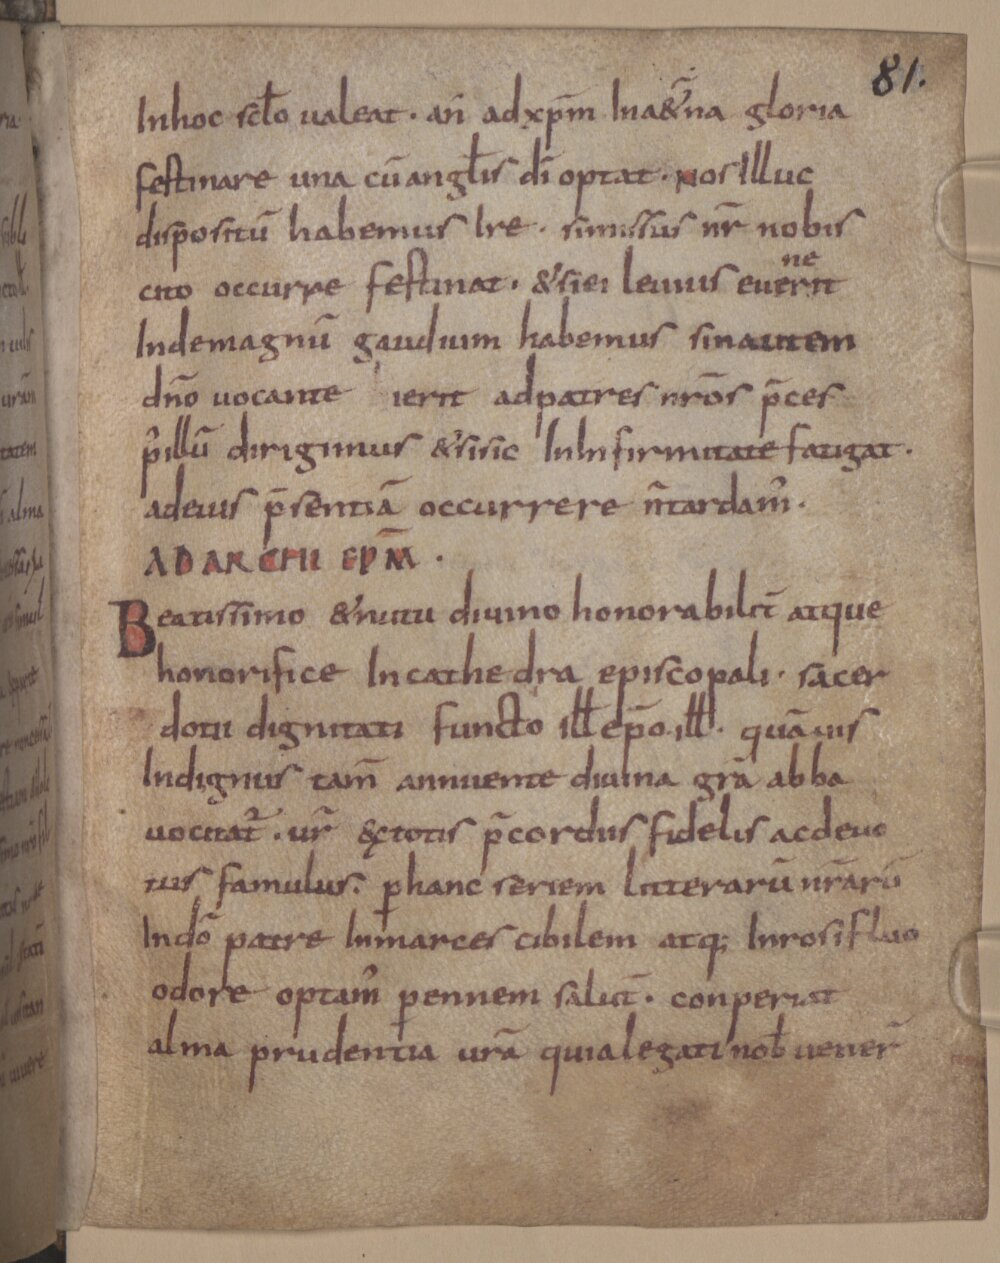 81.
Inhoc sc̄lo ualeat · an̄ adxp̄m In a&̄na gloria
festinare una cū angl̄is dī optat · nos Illuc
disp̄ositū habemus Ire · simissus nr̄ nobis
cito occurre festinat · &si ei leuius euenerit
Indemagnū gaudium habemus sinautem
dn̄o uocante ierit adpatres nr̄os p̄ces
p̄illū dirigimus &sisic InInfirmitate fatigat ·
adeius p̄sentiā occurrere n̄tardam̄ ·
AD ARCHI EPM̄ ·
Beatissimo &nutu diuino honorabilit̄ atque
honorifice Incathedra episcopali · sacer
dotii dignitati functo ill̄ ep̄o ill̄ · quāuis
Indignus tam̄ annuente diuina gr̄a abba
uocitat̄ · ur̄ &̨totis p̄cordiis fidelis acdeuo
tus famulus · ꝑhanc seriem litterarū nr̄arū
Indō patre Inmarces cibilem atq; Inrosifluo
odore optam̄ ꝑennem salut̄ · conperiat
alma prudentia ur̄a quialegati nob̄ uener̄